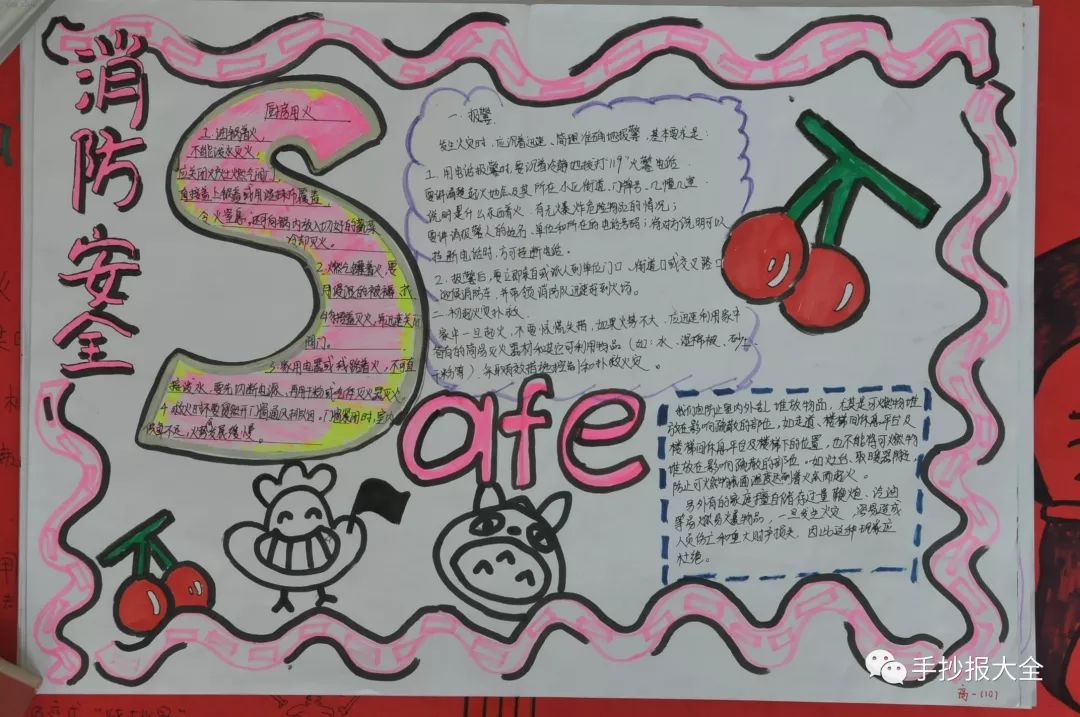 消防安全
Safe
厨房用火
1.油锅着火,
不能泼水灭火,
应关闭炉灶燃气阀门,
直接盖上锅盖或用湿抹布覆盖,
令火窒息。还可向锅内放入切好的蔬菜
冷却灭火。
2.燃气罐着火,要
用浸湿的被褥、衣
物捂盖灭火,并迅速关闭
阀门。
3.家用电器或线路着火,不可直
接泼水,要先切断电源,再用干粉或
4.救火时不要贸然开门窗
供氧不足,火势发展缓慢。
一.报警
发生火灾时,应沉着迅速、简捷准确地报警,基本要求是:
1.用电话报警时,要沉着冷静地拨打"119"火警电话
要讲清楚起火地点及其所在小区街道、门牌号、几幢几室
说明是什么东西着火、有无爆炸危险物品的情况;
要讲清报警人的姓名、单位和所在的电话号码;待对方说明可以
挂断电话时,方可挂断电话。
2.报警后,要立即亲自或派人到单位门口、街道口或交叉路口
迎候消防车,并带领消防队迅速赶到火场。
二.初起火灾扑救
家中一旦起火,不要惊慌失措,如果火势不大,应迅速利用家中
备有的简易灭火器材和其它可利用物品(如:水、湿棉被、砂土、
干粉等)采取有效措施控制和扑救火灾。
我们应防止室内外乱堆放物品,尤其是可燃物堆
放在影响疏散的部位,如走道、楼梯间休息平台及
楼梯间休息平台及楼梯下的位置,也不能将可燃物
堆放在影响疏散的部位。如灶台、取暖器附近,
防止可燃物表面温度达到着火点而起火。
另外有的家庭擅自储存过量鞭炮、汽油
等易燃易爆物品,一旦发生火灾,容易造成
人员伤亡和重大财产损失,因此这种现象应
杜绝。
手抄报大全
高一(10)